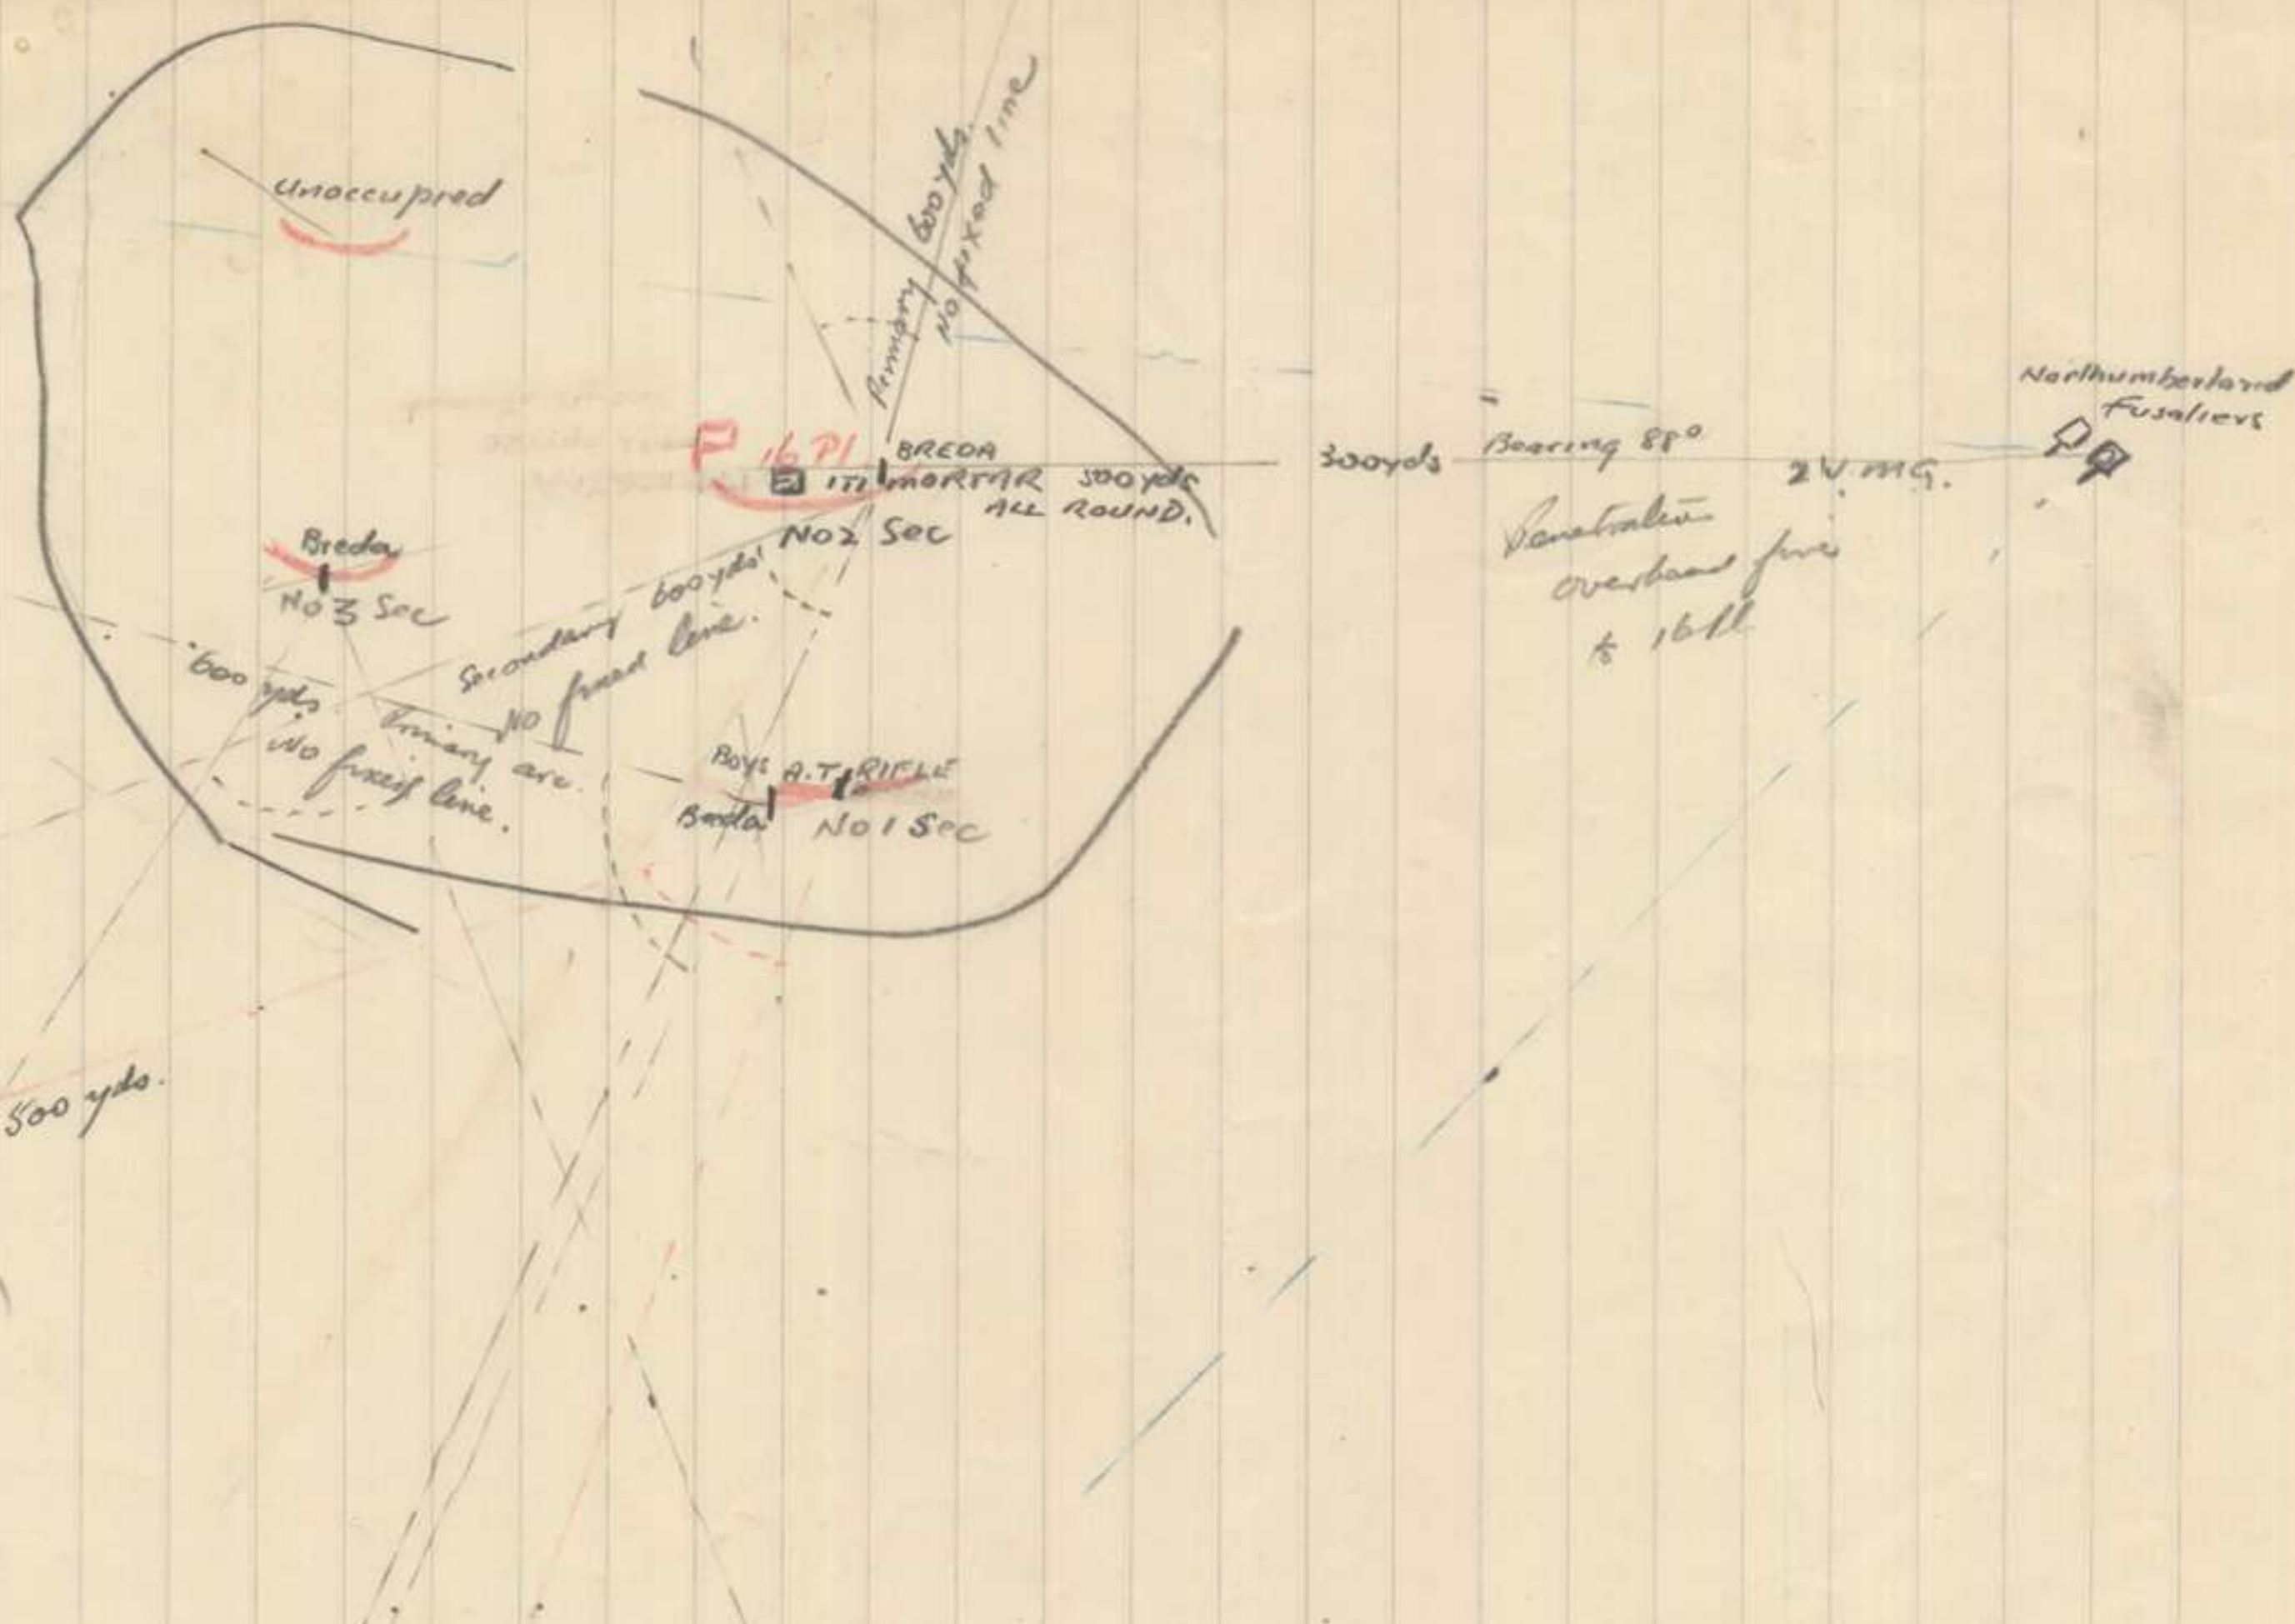 Unoccupied
Primary 600 yds.
No fixed line
Northumberland
Fusaliers
16 Pl
BREDA
ITI MORTAR 500 yds
ALL ROUND.
No 2 Sec
300yds
Bearing 88°
2 V. MG.
Penetration
overhead fire
to 16 Pl
Breda
No 3 Sec
Secondary 600 yds
No fixed line.
600 yds. Primary arc.
No fixed line.
Boys A.T. RIFLE
Breda
No 1 Sec
500 yds.